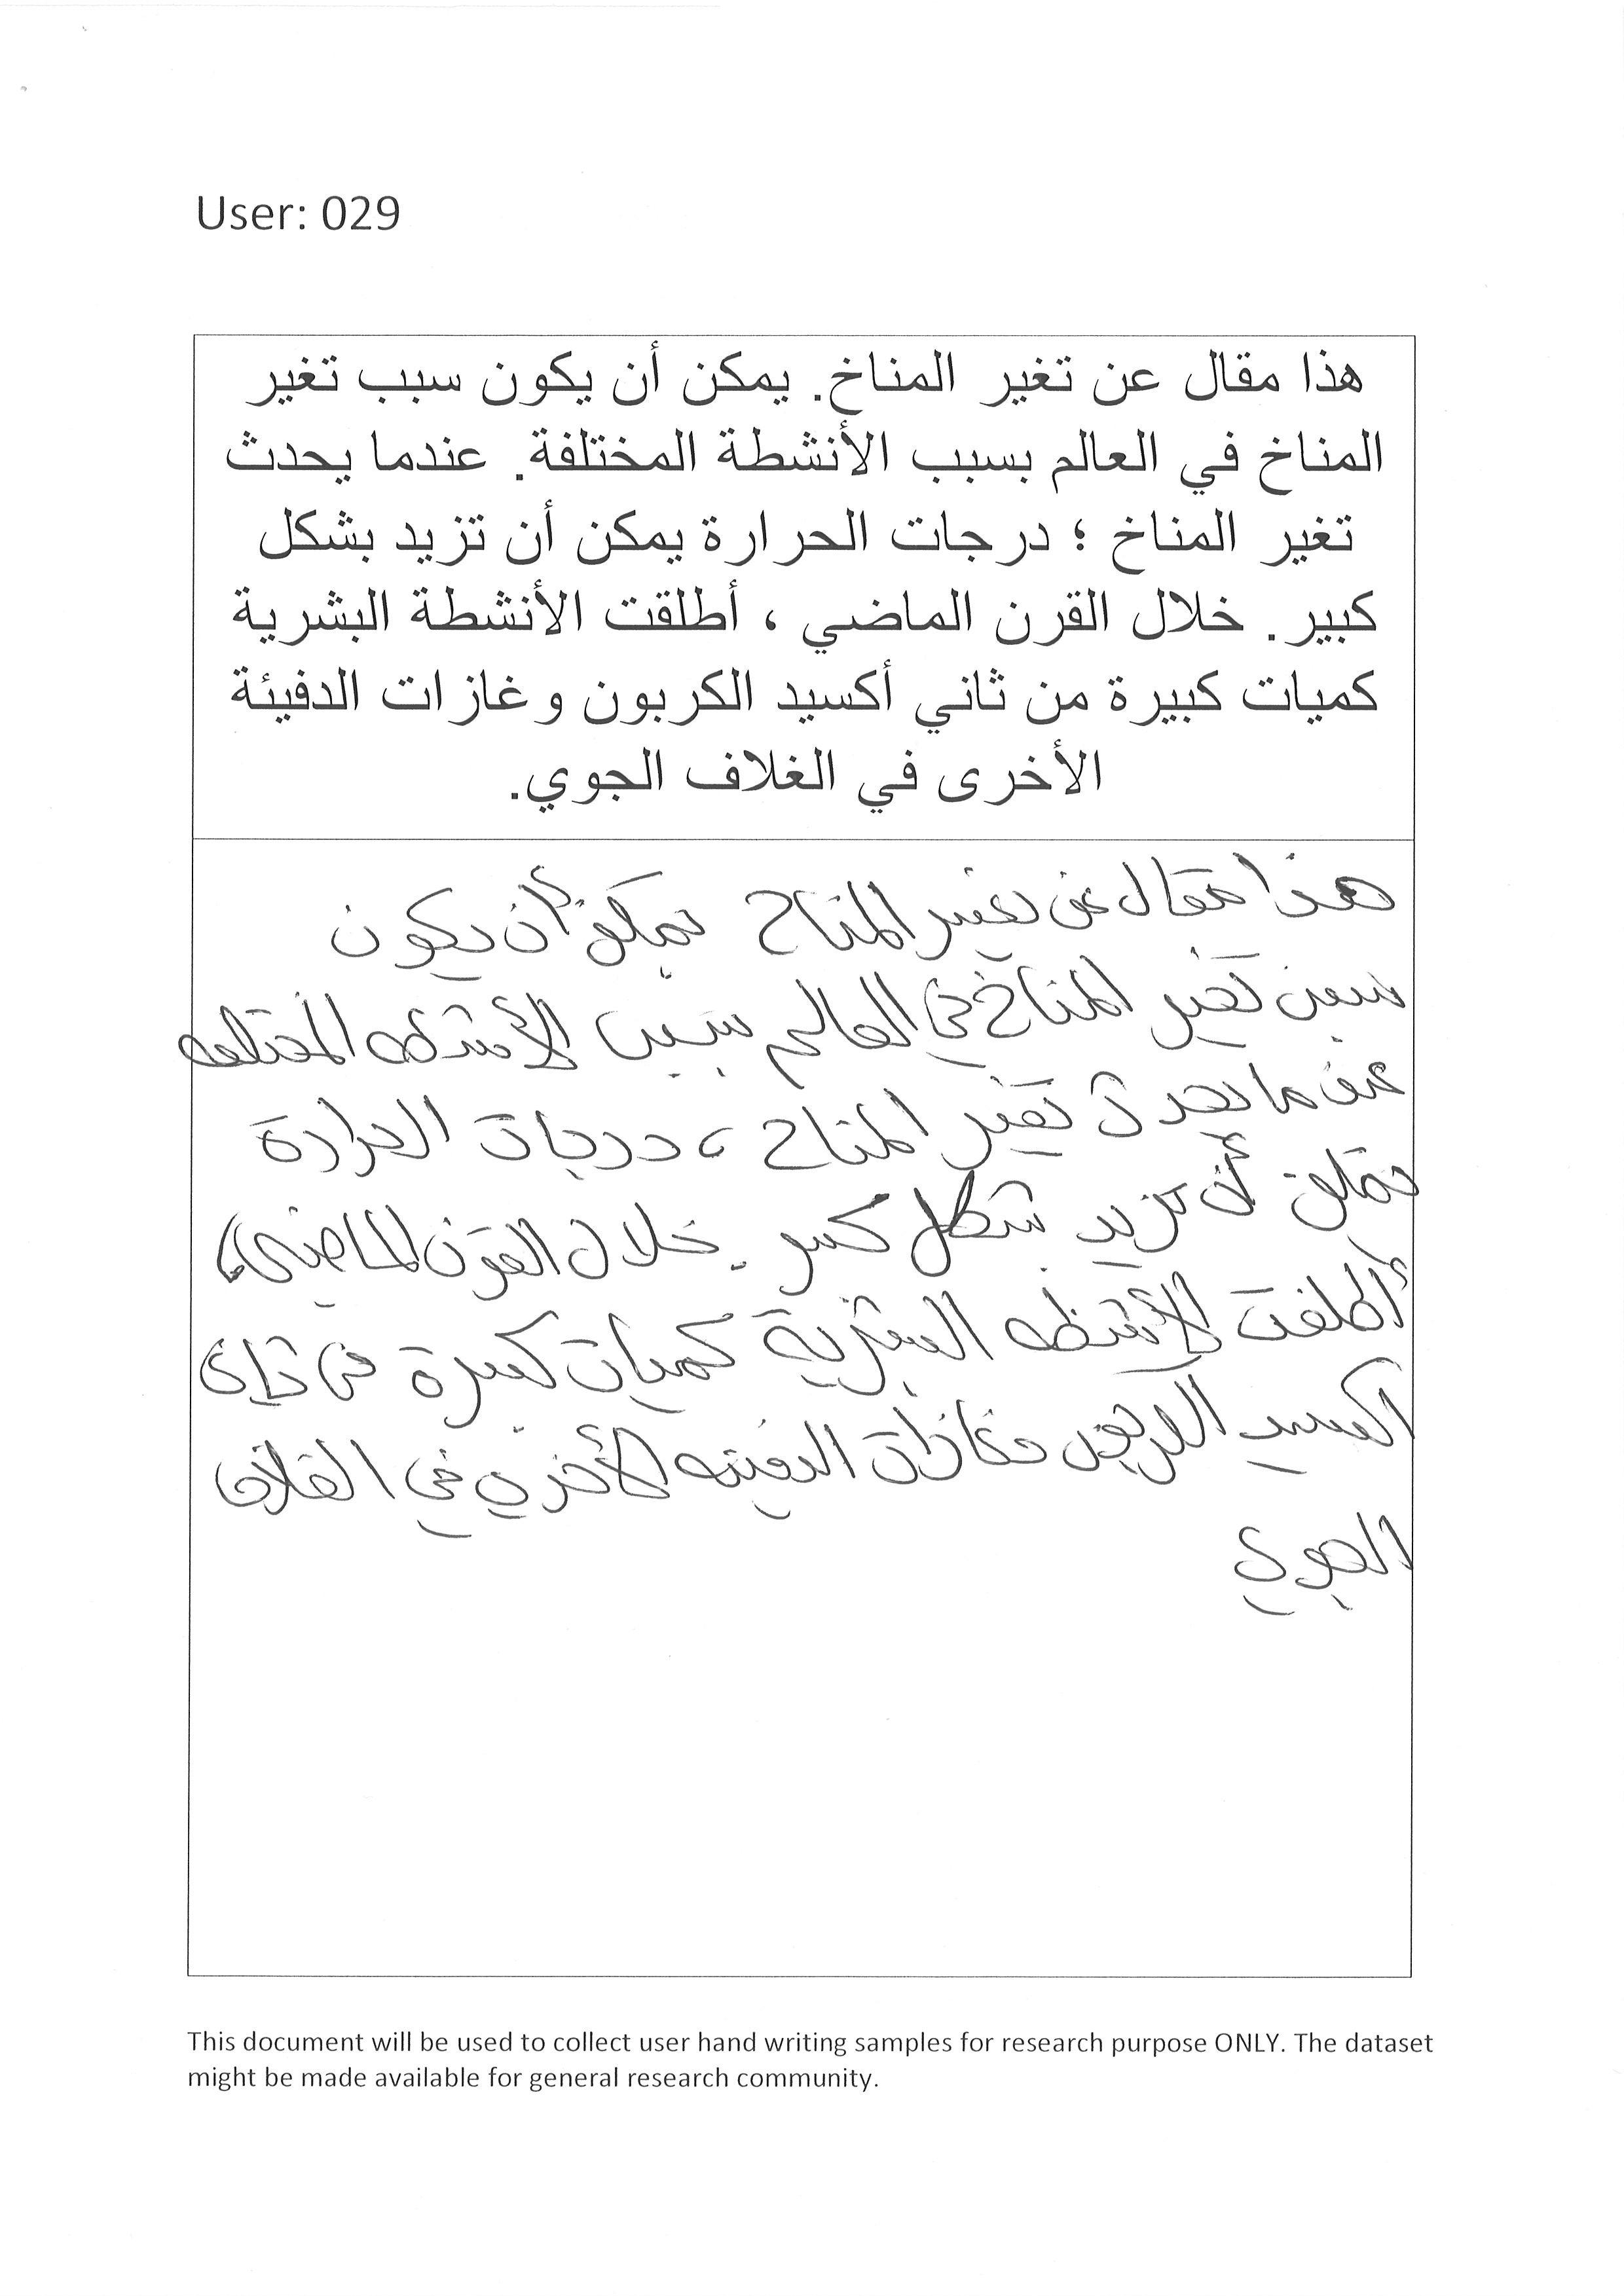 User: 029
هذا مقال عن تغير المناخ. يمكن أن يكون سبب تغير
المناخ في العالم بسبب الأنشطة المختلفة. عندما يحدث
تغير المناخ ؛ درجات الحرارة يمكن أن تزيد بشكل
كبير. خلال القرن الماضي ، أطلقت الأنشطة البشرية
كميات كبيرة من ثاني أكسيد الكربون وغازات الدفيئة
الأخرى في الغلاف الجوي.
هذا مقال عن تغير المناخ يمكن أن يكون
سبب تغير المناخ في العالم بسبب الأنشطه المختلفه
عند ما يحدث تغير المناخ ، درجات الحرارة
يمكن أن تزيد بشكل كبير . خلال القرن الماضي ،
أطلقت الأنشطه البشرية كميات كبيرة من ثاني
اكسيد الكربون وغازات الدفيئه الأخرى في الغلاف
الجوي
This document will be used to collect user hand writing samples for research purpose ONLY. The dataset
might be made available for general research community.